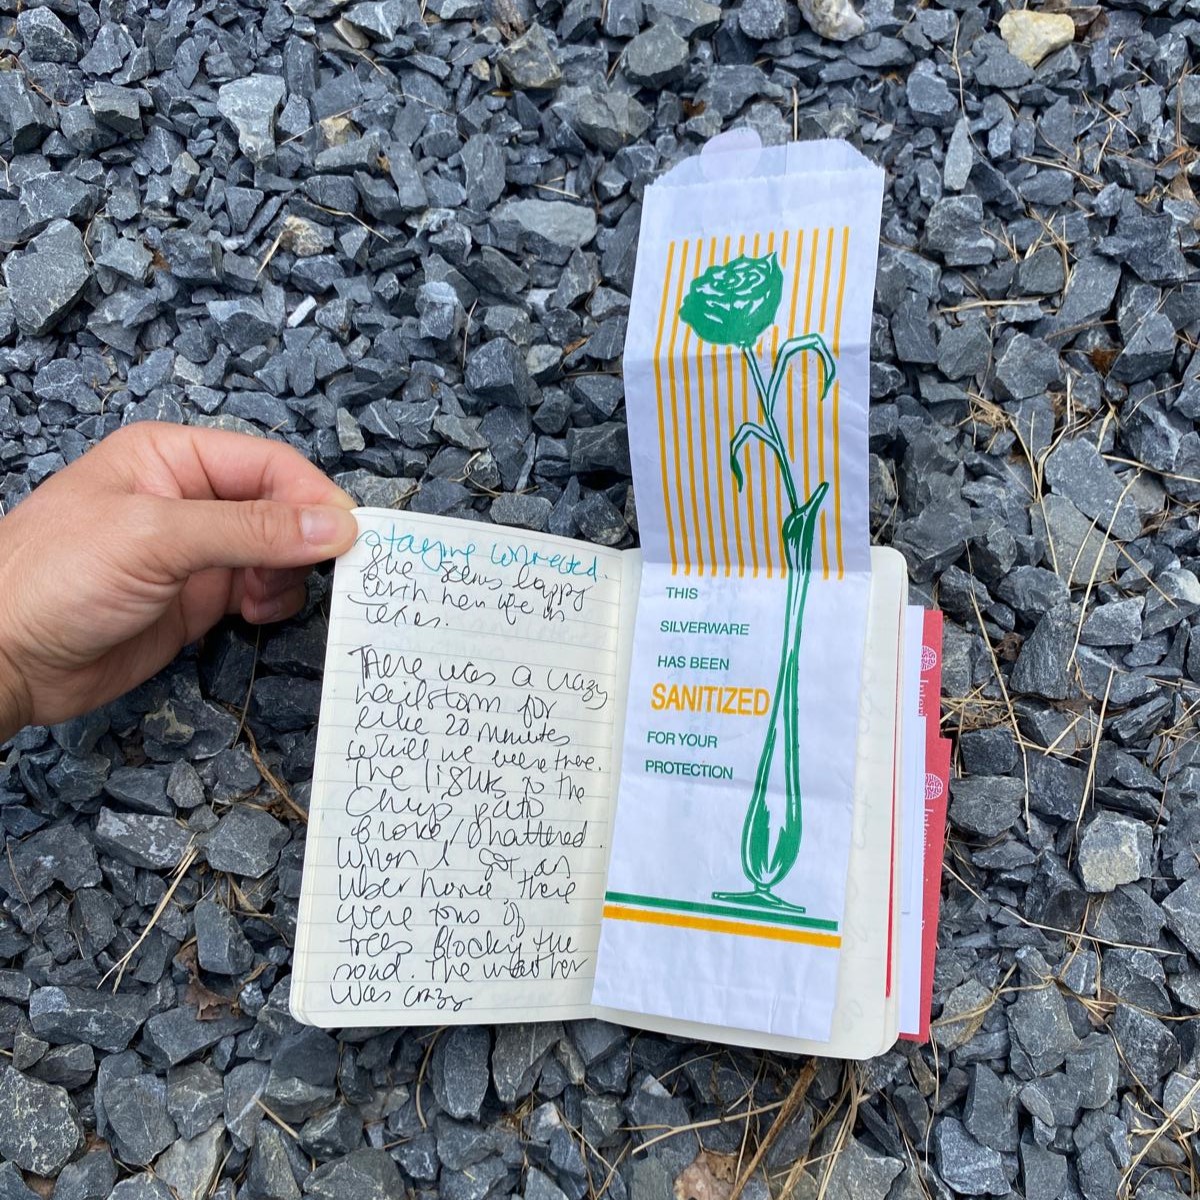 staying connected.
She seems happy
with her life in
Texas.
There was a crazy
hailstorm for
like 20 minutes
while we were there.
The lights to the
Chip patio
broke/shattered.
When I got an
Uber home, there
were tons of
trees blocking the
road. The weather
was crazy
THIS
SILVERWARE
HAS BEEN
SANITIZED
FOR YOUR
PROTECTION